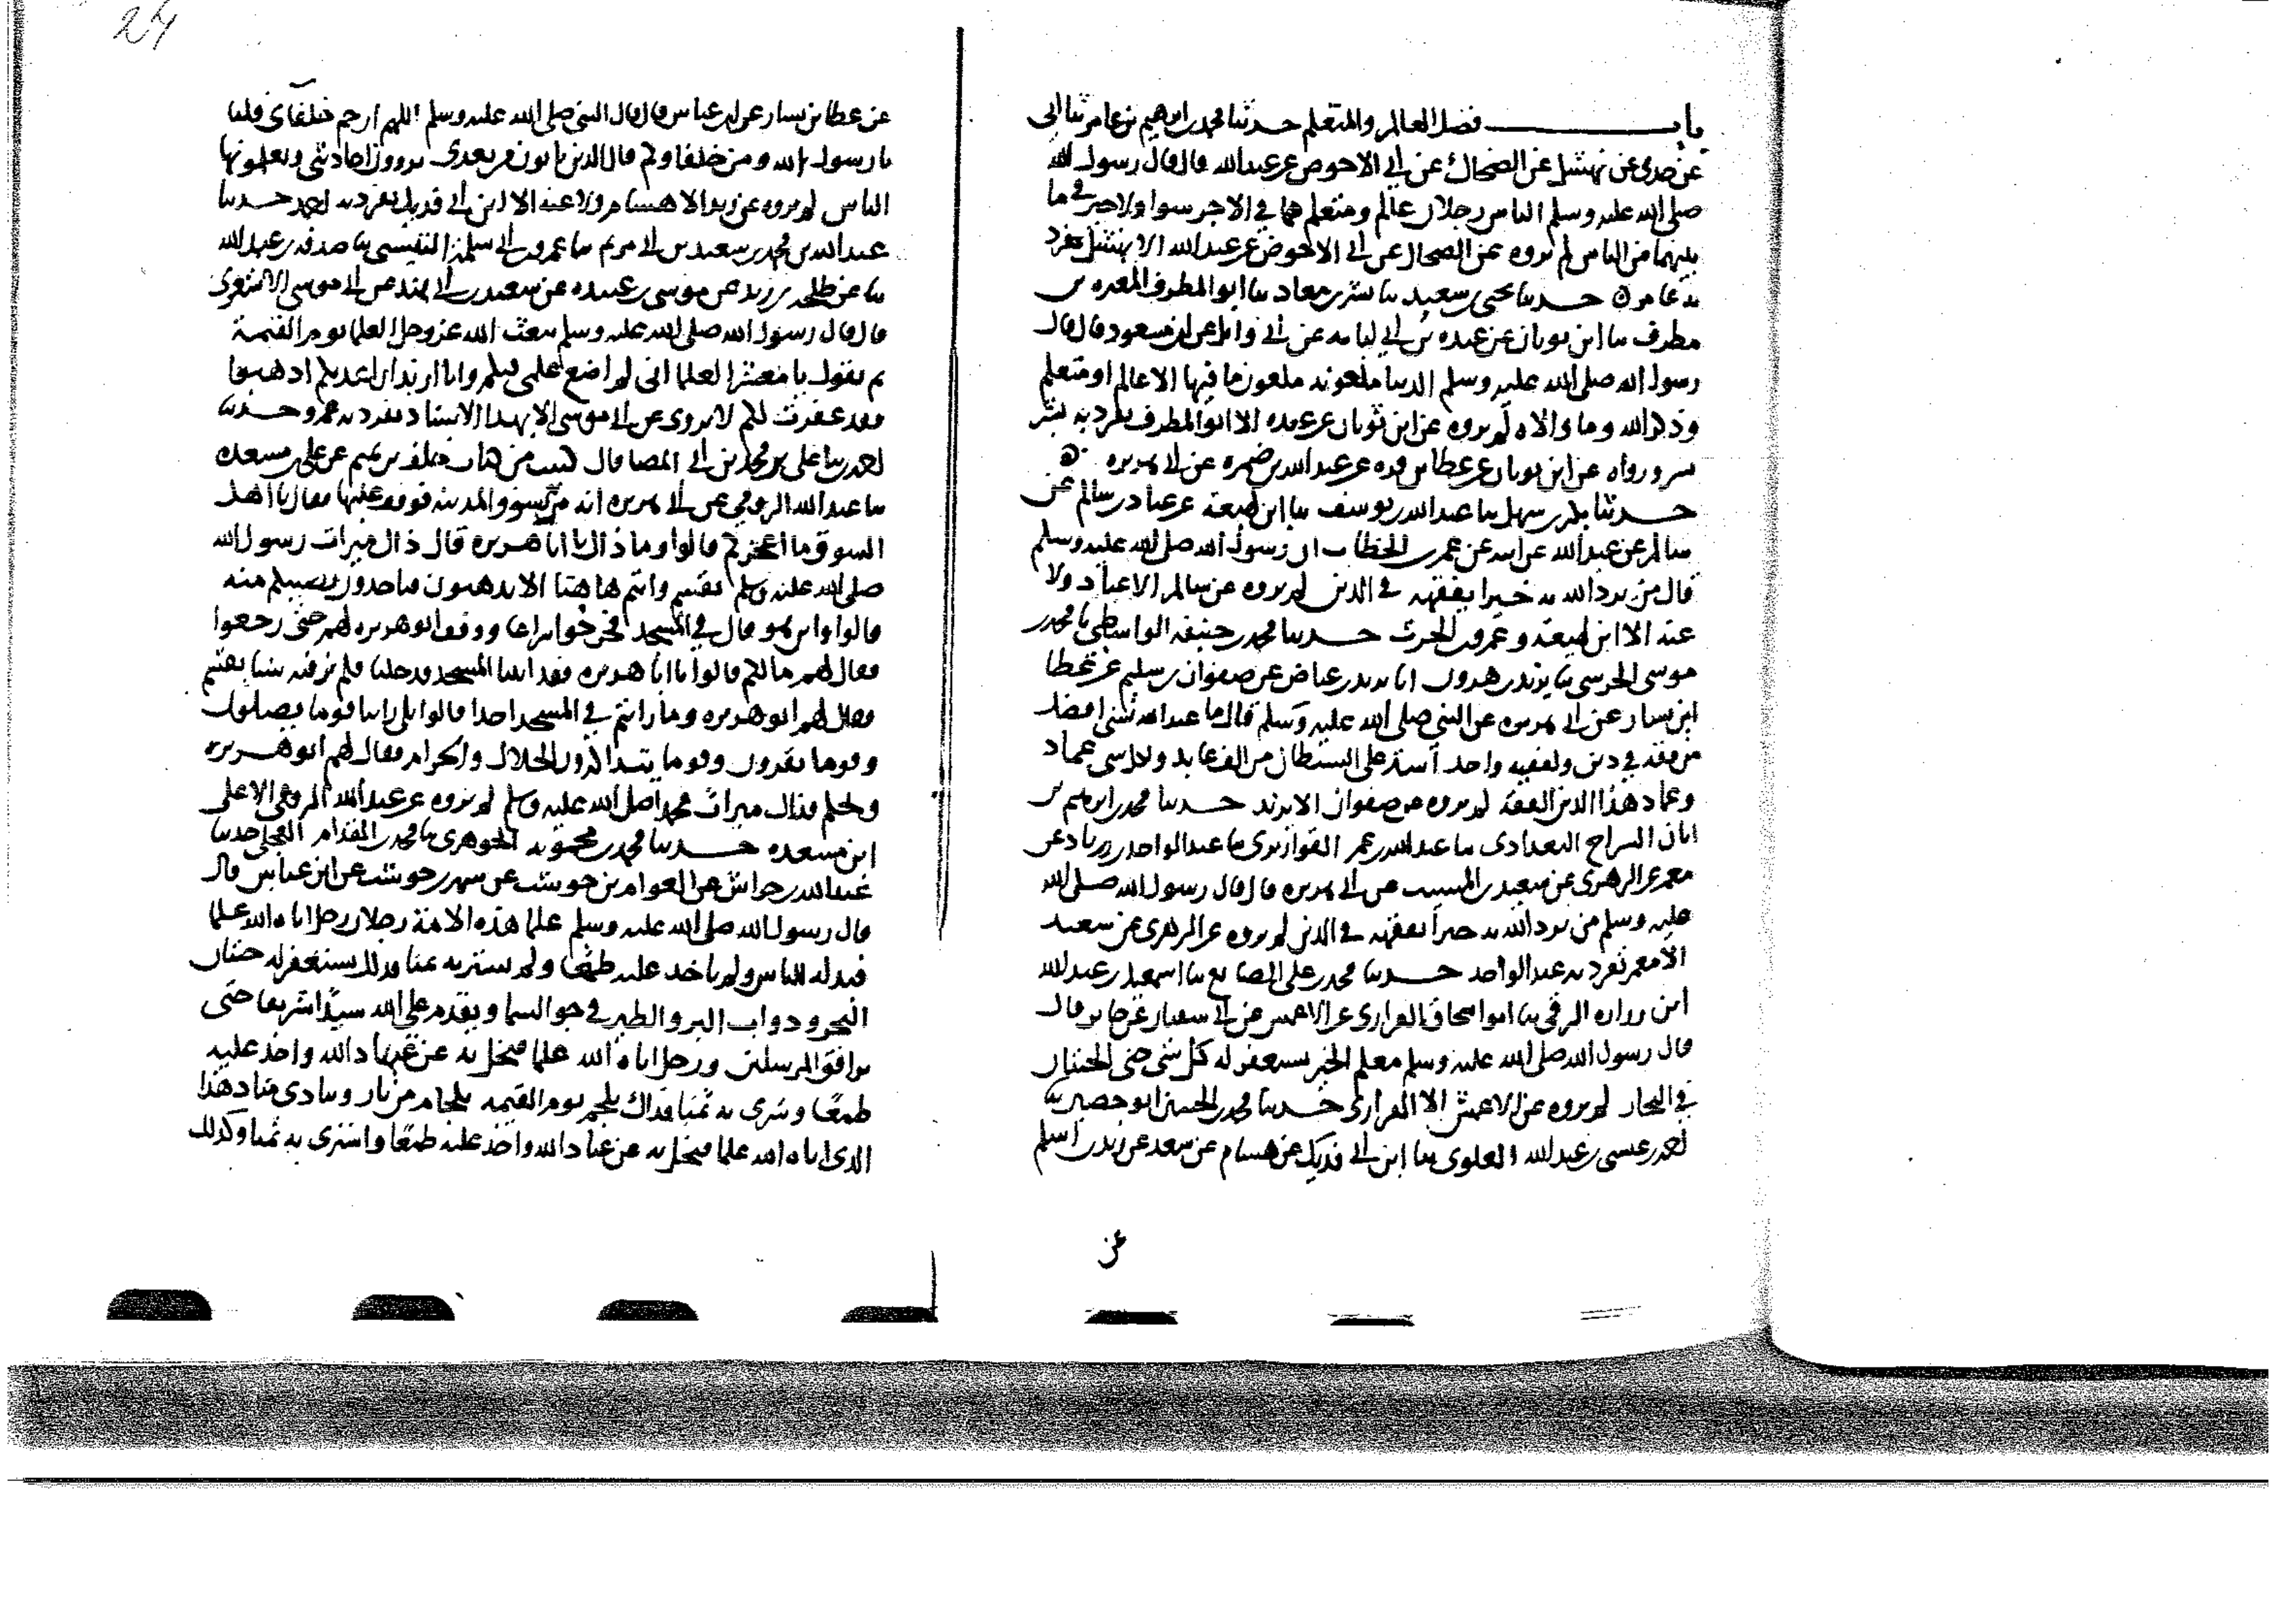 باب فضل العالم والمتعلم حدثنا محمد بن ابرهيم بن عامر ثنا ابي
عن جدي عن نهشل عن الضحاك عن ابي الاحوص عن عبدالله قال قال رسول الله
صلى الله عليه وسلم الناس رجلان عالم ومتعلم هما في الاجر سوا ولا خير في ما
بينهما من الناس لم يروه عن الضحاك عن ابي الاحوص عن عبدالله الا نهشل تفرد
به عامر حدثنا يحيى بن سعيد بنا بشر بن معاد بنا ابو المطرف المغيره بن
مطرف بنا ابن ثوبان عن عبده بن ابي لبابه عن ابي وائل عن ابن مسعود قال قال
رسول الله صلى الله عليه وسلم الدنيا ملعونه ملعون ما فيها الا عالم او متعلم
وذكر الله وما والاه لم يروه عن ابن ثوبان عن عبده الا ابو المطرف تفرد به بشر
ورواه عن ابن ثوبان عن عطا بن قره عن عبدالله بن ضمره عن ابي هريره
حدثنا بكر بن سهل بنا عبدالله بن يوسف بنا ابن لهيعة عن عباد بن سالم عن
سالم عن عبدالله عن ابيه عن عمر بن الخطاب ان رسول الله صلى الله عليه وسلم
قال من يرد الله به خيرا يفقهه في الدين لم يروه عن سالم الا عباد ولا
عنه الا ابن لهيعة وعمرو بن الحرث حدثنا محمد بن حنيفه الواسطي بنا محمد بن
موسى الحرسي بنا يزيد بن هرون انا يزيد بن عياض عن صفوان بن سليم عن عطا
ابن يسار عن ابي هريره عن النبي صلى الله عليه وسلم قال ما عبد الله بشي افضل
من فقه في دين ولفقيه واحد اشد على الشيطان من الف عابد ولكل شي عماد
وعماد هذا الدين الفقه لم يروه عن صفوان الا يزيد حدثنا محمد بن ابرهيم بن
ابان السراج البغدادي بنا عبيدالله بن عمر القواريري بنا عبدالواحد بن زياد عن
معمر عن الزهري عن سعيد بن المسيب عن ابي هريره قال قال رسول الله صلى الله
عليه وسلم من يرد الله به خيرا يفقهه في الدين لم يروه عن الزهري عن سعيد
الا معمر تفرد به عبدالواحد حدثنا محمد بن علي الصايغ بنا اسمعيل بن عبدالله
ابن زراره الرقي بنا ابو اسحاق الفزاري عن الاعمش عن ابي سفيان عن جابر قال
قال رسول الله صلى الله عليه وسلم معلم الخير يستغفر له كل شي حتى الحيتان
في البحار لم يروه عن الاعمش الا الفزاري حدثنا محمد بن الحسين ابو حصين بنا
احمد بن عيسى بن عبدالله العلوي بنا ابن ابي فديك عن هشام بن سعد عن زيد بن اسلم
عن
24
عن عطا بن يسار عن ابن عباس قال قال النبي صلى الله عليه وسلم اللهم ارحم خلفاي قلنا
يا رسول الله ومن خلفاوكم قال الذين ياتون من بعدي يروون احاديثي ويعلمونها
الناس لم يروه عن زيد الا هشام ولا عنه الا ابن ابي فديك تفرد به احمد حدثنا
عبدالله بن محمد بن سعيد بن ابي مريم بنا عمرو بن ابي سلمة التنيسي بنا صدقه بن عبدالله
بنا عن طلحه بن زيد عن موسى بن عبيده عن سعيد بن ابي هند عن ابي موسى الاشعري
قال قال رسول الله صلى الله عليه وسلم يبعث الله عز وجل العلما يوم القيمة
ثم يقول يا معشر العلما اني لم اضع علمي فيكم وانا اريد ان اعذبكم اذهبوا
فقد غفرت لكم لا يروى عن ابي موسى الا بهذا الاسناد تفرد به عمرو حدثنا
احمد بنا علي بن محمد بن ابي المضا قال كتبت من كتاب خلف بن تميم عن علي بن مسعده
بنا عبدالله الرومي عن ابي هريره انه مر بسوق المدينه فوقف عليها فقال يا اهل
السوق ما اعجزكم قالوا وما ذاك يا ابا هريره قال ذاك ميراث رسول الله
صلى الله عليه وسلم يقسم وانتم هاهنا الا تذهبون فتاخذون نصيبكم منه
قالوا واين هو قال في المسجد فخرجوا سراعا ووقف ابو هريره لهم حتى رجعوا
فقال لهم ما لكم قالوا يا ابا هريره فقد اتينا المسجد فدخلنا فلم نر فيه شيا يقسم
فقال لهم ابو هريره وما رايتم في المسجد احدا قالوا بلى راينا قوما يصلون
وقوما يقرون وقوما يتذاكرون الحلال والحرام فقال لهم ابو هريره
ويحكم فذاك ميراث محمد صلى الله عليه وسلم لم يروه عن عبدالله الرومي الا علي
ابن مسعده حدثنا محمد بن محمويه الجوهري بنا محمد بن المقدام العجلي حدثنا
عبدالله بن خراش عن العوام بن حوشب عن شهر بن حوشب عن ابن عباس قال
قال رسول الله صلى الله عليه وسلم علما هذه الامة رجلان رجل اتاه الله علما
فبذله للناس ولم ياخذ عليه طمعا ولم يشتر به ثمنا فذلك يستغفر له حيتان
البحر ودواب البر والطير في جو السما ويقدم على الله سيدا شريفا حتى
يرافق المرسلين ورجل اتاه الله علما فبخل به عن عباد الله واخذ عليه
طمعا وشرى به ثمنا فذاك يلجم يوم القيمه بلجام من نار وينادي مناد هذا
الذي اتاه الله علما فبخل به عن عباد الله واخذ عليه طمعا واشترى به ثمنا وكذلك